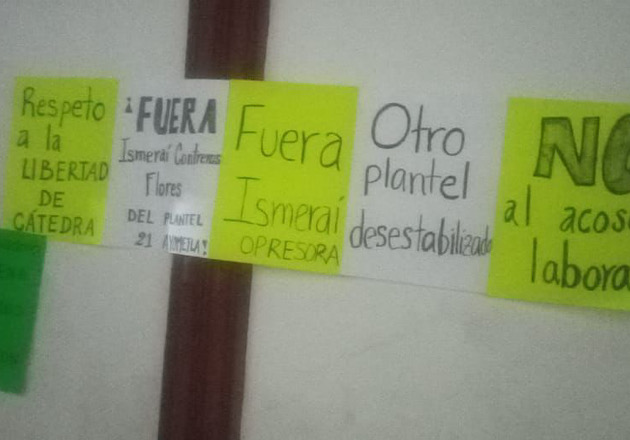 Respeto
a la
LIBERTAD
DE
CÁTEDRA
¡FUERA
Ismeraí Contreras
Flores
DEL PLANTEL
21
Fuera
Ismeraí
OPRESORA
Otro
plantel
desestabilizado
NO
al acos
labora